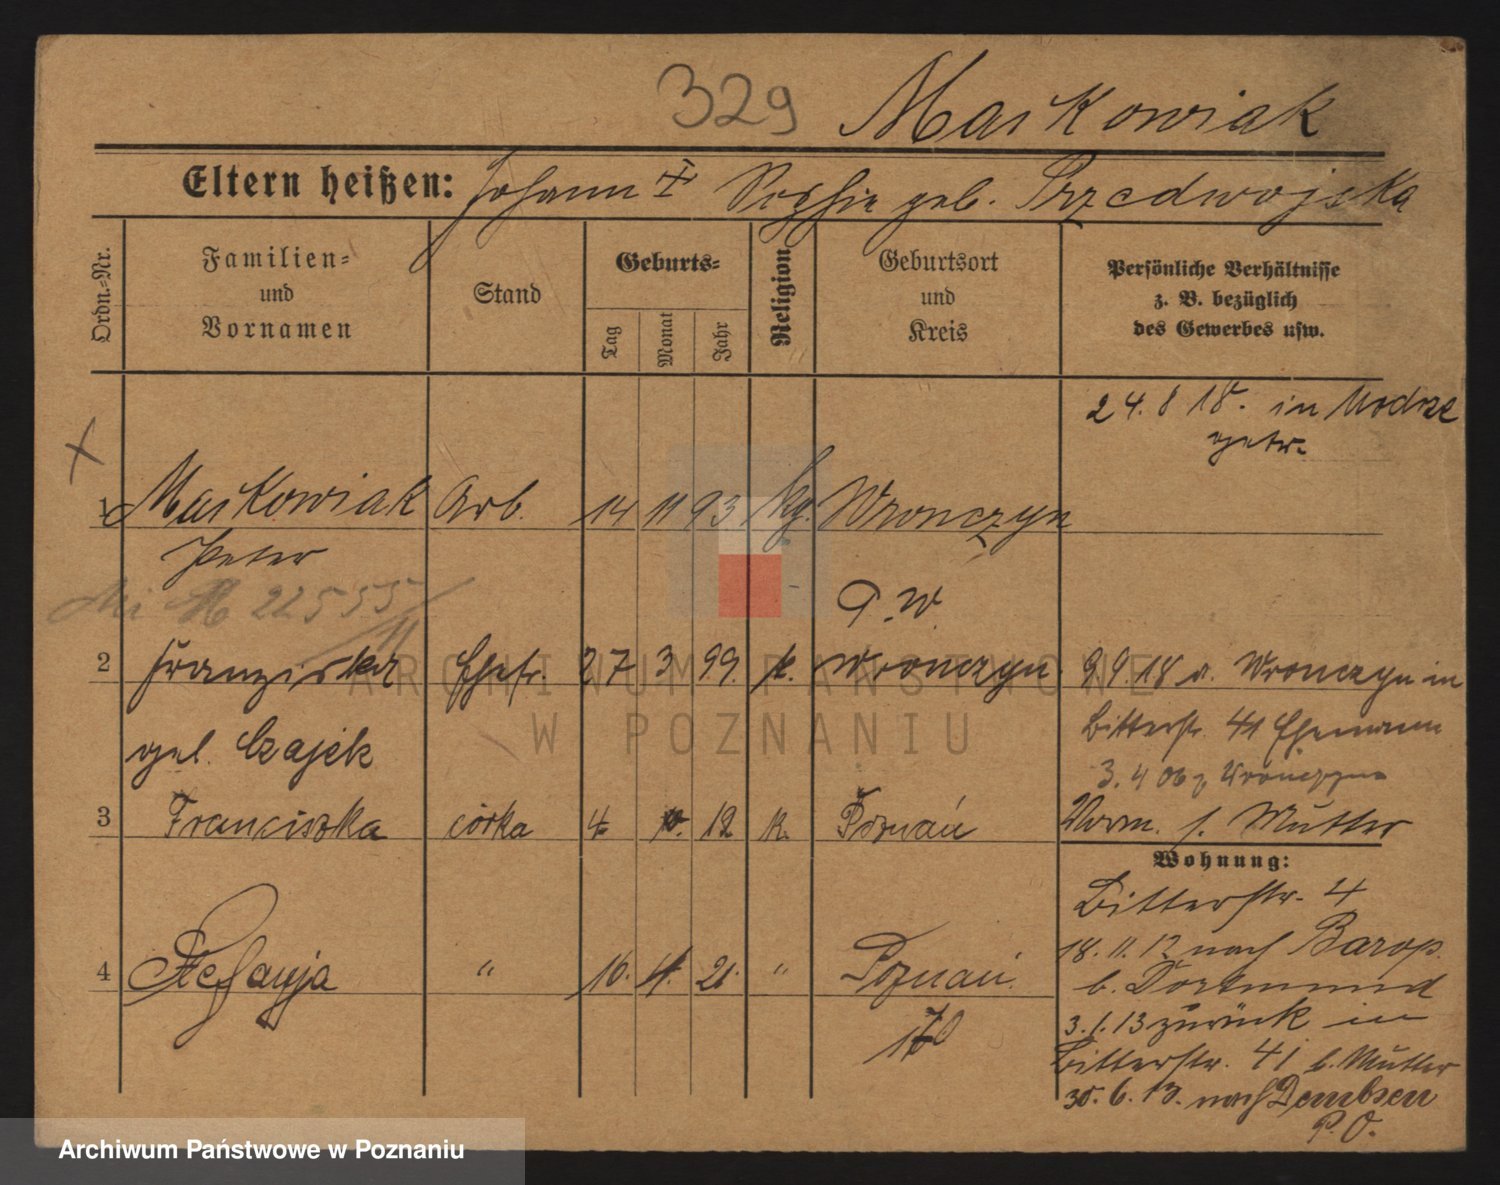 329 Maćkowiak
Eltern heißen: Johann ‡ Sophie geb. Przedwojska
Ordn.-Nr.
Familien-
und
Vornamen
Stand
Geburts-
Tag
Monat
Jahr
Religion
Geburtsort
und
Kreis
Persönliche Verhältnisse
z. B. bezüglich
des Gewerbes usw.
24. 8 18. in Modrze
getr.
1 Maćkowiak Arb. 14 11 93 kg. Wronczyn
Peter
22555
11
P. W.
2 Franziska Ehefr. 27 3 99. k. Wronczyn. 9 9. 18 v. Wronczyn in
Bitterstr. 41 Ehemann
geb. Czajek
3. 4
3 Franciszka córka 4 19 k. Poznań
Vorm. s. Mutter
Wohnung:
Bitterstr. 4
18. 11. 12 nach Barop
b. Dortmund
4 Stefanja " 16. 4. 21. " Poznań.
3. 1. 13 zurück in
Bitterstr. 41 b. Mutter
30. 6. 13. nach Dembsen
P. O.
ARCHIWUM PAŃSTWOWE
W POZNANIU
Archiwum Państwowe w Poznaniu